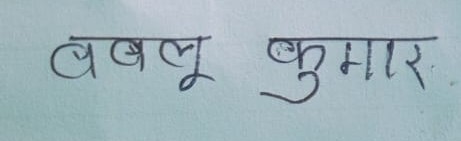 बबलू कुमार